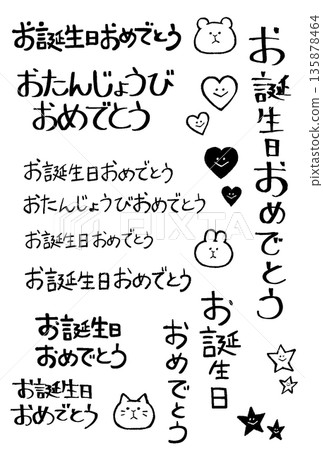 お誕生日おめでとう
おたんじょうび
おめでとう
お誕生日おめでとう
おたんじょうびおめでとう
お誕生日おめでとう
お誕生日おめでとう
お誕生日
おめでとう
お誕生日
おめでとう
お誕生日おめでとう
お誕生日
おめでとう
PIXTA
135878464